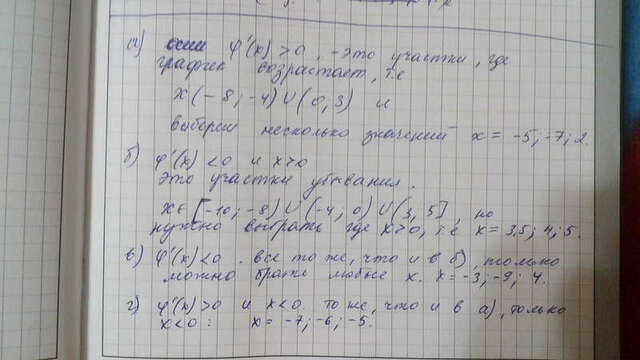 а) если φ'(x) > 0, - это участки, где
график возрастает, т.е
x (-8; -4) ∪ (0, 3) и
выберем несколько значений x = -5; -7; 2.
б) φ'(x) < 0 и x > 0
это участки убывания.
x ∈ [-10; -8) ∪ (-4; 0) ∪ (3, 5], но
нужно выбрать где x > 0, т.е x = 3,5; 4; 5.
в) φ'(x) < 0. все то же, что и в б), только
можно брать любые x. x = -3; -9; 4.
г) φ'(x) > 0 и x < 0. то же, что и в а), только
x < 0: x = -7; -6; -5.